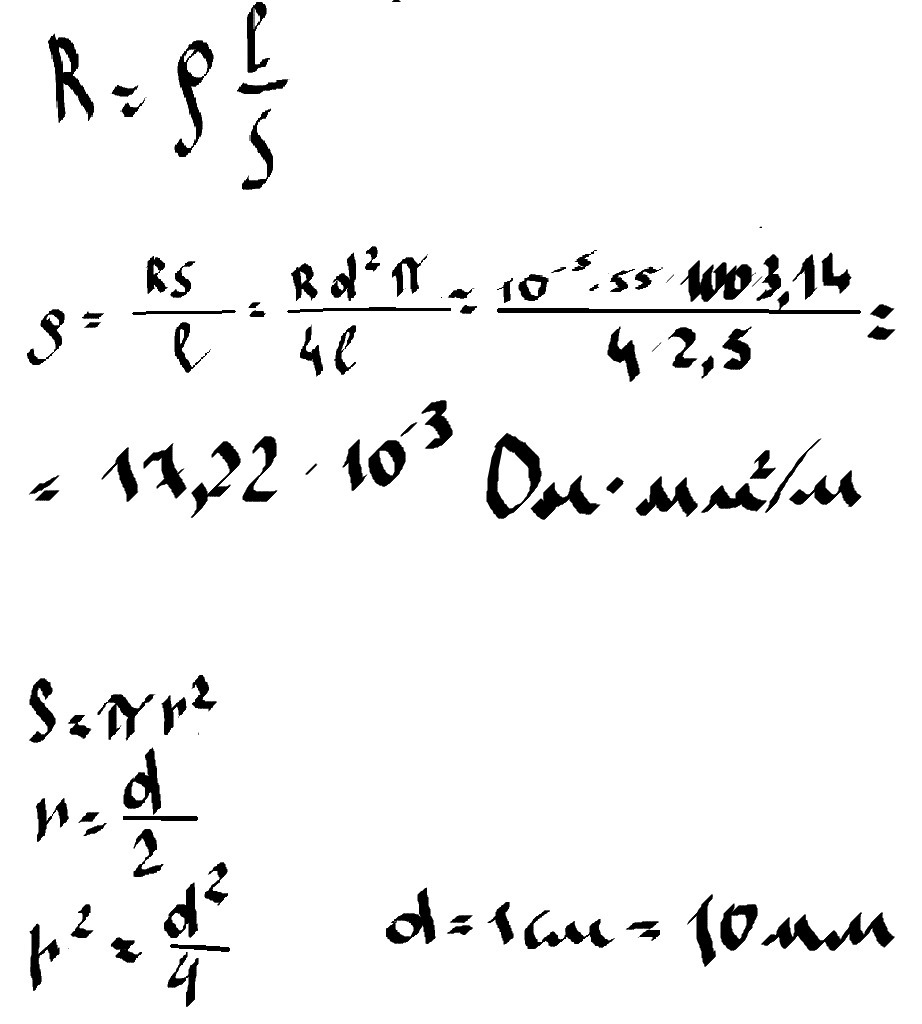 R = ρ l/S
ρ = RS/l = Rd²π/4l = 10⁻⁵·55·100·3,14/4·2,5 =
= 17,22 · 10⁻³ Ом·мм²/м
S = πr²
r = d/2
r² = d²/4
d = 1см = 10мм